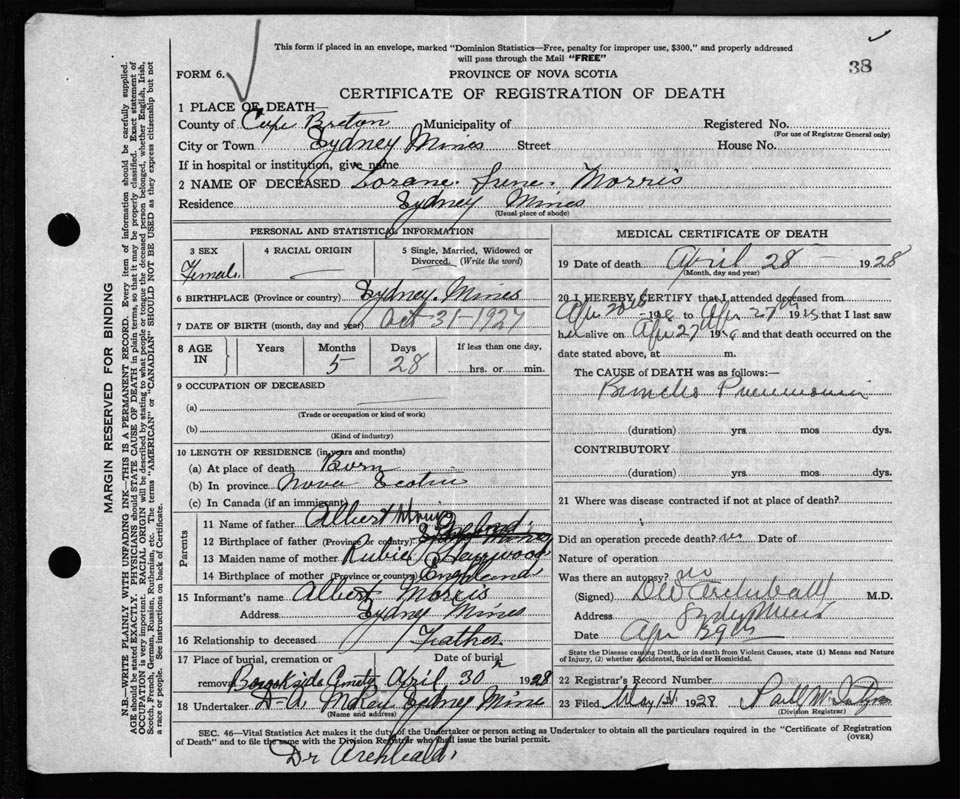 This form if placed in an envelope, marked "Dominion Statistics—Free, penalty for improper use, $300," and properly addressed
will pass through the Mail "FREE"
38
FORM 6.
PROVINCE OF NOVA SCOTIA
CERTIFICATE OF REGISTRATION OF DEATH
1 PLACE OF DEATH—
County of Cape Breton Municipality of Registered No.
(For use of Registrar General only)
City or Town Sydney Mines Street House No.
If in hospital or institution, give name
2 NAME OF DECEASED Lorane Irene Morris
Residence Sydney Mines
(Usual place of abode)
PERSONAL AND STATISTICAL INFORMATION
3 SEX 4 RACIAL ORIGIN 5 Single, Married, Widowed or
Divorced. (Write the word)
Female.
6 BIRTHPLACE (Province or country) Sydney Mines
7 DATE OF BIRTH (month, day and year) Oct 31-1927
8 AGE IN Years Months Days If less than one day,
5 28 hrs. or min.
9 OCCUPATION OF DECEASED
(a)
(Trade or occupation or kind of work)
(b)
(Kind of industry)
10 LENGTH OF RESIDENCE (in years and months)
(a) At place of death Born
(b) In province Nova Scotia
(c) In Canada (if an immigrant)
Parents
11 Name of father Albert Morris
12 Birthplace of father (Province or country) Sydney Mines
13 Maiden name of mother Rubie Haywood
14 Birthplace of mother (Province or country) England
15 Informant's name Albert Morris
Address Sydney Mines
16 Relationship to deceased Father
17 Place of burial, cremation or Date of burial
removal Brookside Cemety April 30 1928
18 Undertaker Sydney Mine
(Name and address)
MEDICAL CERTIFICATE OF DEATH
19 Date of death April 28 1928
(Month, day and year)
20 I HEREBY CERTIFY that I attended deceased from
Apr 20th 1928 to Apr 27th 1928 that I last saw
her alive on Apr 27th 1928 and that death occurred on the
date stated above, at m.
The CAUSE of DEATH was as follows:—
Broncho Pneumonia
(duration) yrs. mos. dys.
CONTRIBUTORY
(duration) yrs. mos. dys.
21 Where was disease contracted if not at place of death?
Did an operation precede death? no Date of
Nature of operation
Was there an autopsy? no
(Signed) Archibald M.D.
Address Sydney Mines
Date Apr 29th
State the Disease causing Death, or in death from Violent Causes, state (1) Means and Nature
of Injury, (2) whether Accidental, Suicidal or Homicidal.
22 Registrar's Record Number
23 Filed May 1st 1928
(Division Registrar)
SEC. 46—Vital Statistics Act makes it the duty of the Undertaker or person acting as Undertaker to obtain all the particulars required in the "Certificate of Registration
of Death" and to file the same with the Division Registrar who shall issue the burial permit.
(OVER)
Dr Archibald.
MARGIN RESERVED FOR BINDING
N.B.—WRITE PLAINLY WITH UNFADING INK—THIS IS A PERMANENT RECORD. Every item of information should be carefully supplied.
AGE should be stated EXACTLY. PHYSICIANS should STATE CAUSE OF DEATH in plain terms, so that it may be properly classified. Exact statement of
OCCUPATION is very important. RACIAL ORIGIN will be described by stating to what people or tongue the deceased person belonged, whether English, Irish,
Scotch, French, German, Russian, Ruthenian, etc. The terms "AMERICAN" or "CANADIAN" SHOULD NOT BE USED as they express citizenship but not
a race or people. See instructions on back of Certificate.